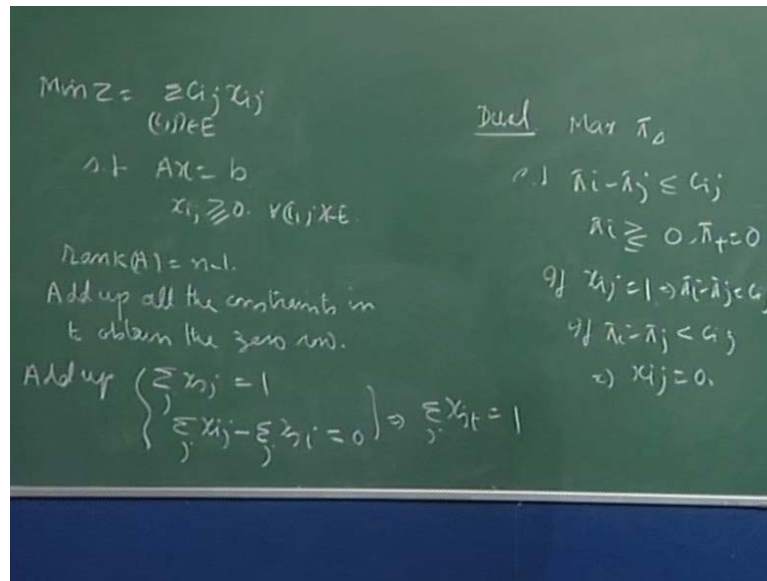 Min Z = Σ Cij xij
(i,j)∈E
s.t Ax = b
xij ≥ 0. ∀(i,j)∈E.
Rank(A) = n-1.
Add up all the constraints in
to obtain the zero row.
Add up { Σj xsj = 1
Σj xij - Σj xji = 0 } ⇒ Σj xjt = 1
Dual Max πs
s.t πi - πj ≤ Cij
πi ≷ 0, πt = 0
If xij = 1 ⇒ πi - πj = Cij
If πi - πj < Cij
⇒ xij = 0.